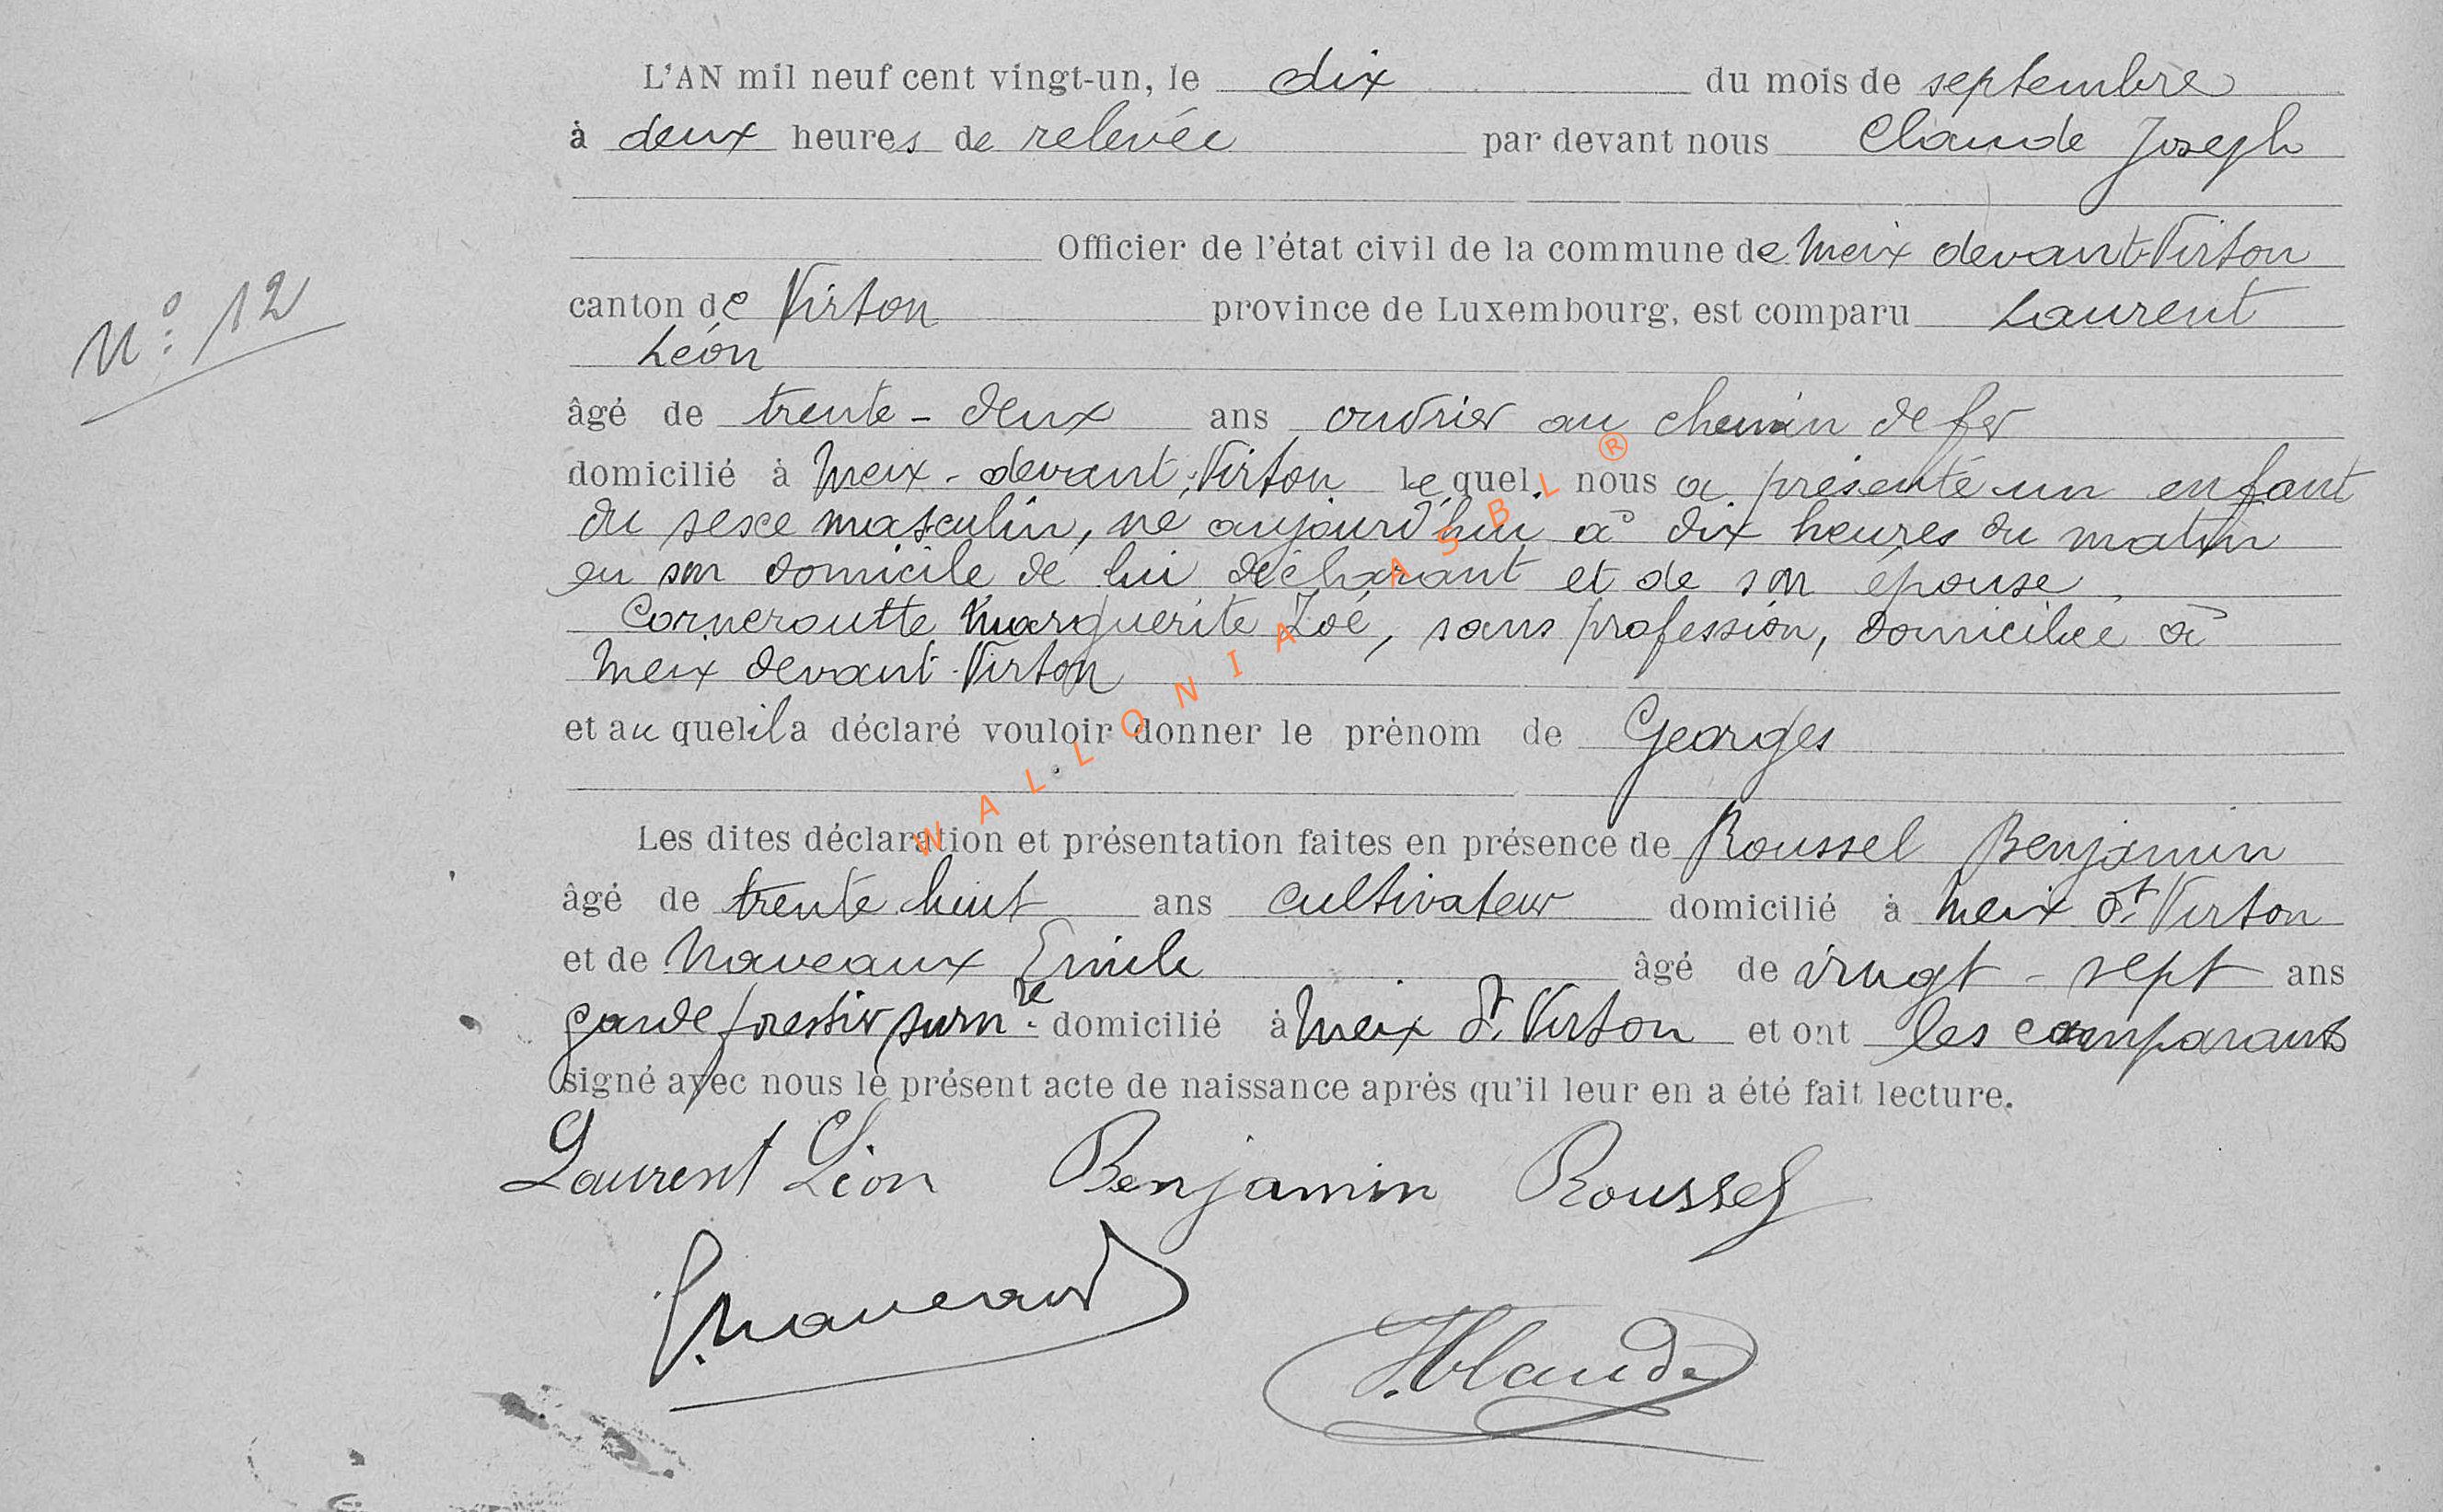 L'AN mil neuf cent vingt-un, le dix du mois de septembre
à deux heures de relevée par devant nous Claude Joseph
Officier de l'état civil de la commune de Meix devant-Virton
N° 12
canton de Virton province de Luxembourg, est comparu Laurent
Léon
âgé de trente-deux ans ouvrier au chemin de fer
domicilié à Meix-devant-Virton lequel nous a présenté un enfant
du sexe masculin, né aujourd'hui à dix heures du matin
en son domicile de lui déclarant et de son épouse
Corneroutte Marguerite Zoé, sans profession, domiciliée à
Meix devant-Virton
et au quel il a déclaré vouloir donner le prénom de Georges
Les dites déclaration et présentation faites en présence de Roussel Benjamin
âgé de trente huit ans cultivateur domicilié à Meix dt Virton
et de Naveaux Emile âgé de vingt-sept ans
garde forestier surnre domicilié à Meix dt Virton et ont les comparants
signé avec nous le présent acte de naissance après qu'il leur en a été fait lecture.
Laurent Léon Benjamin Roussel
E. Naveaux
J. Claude
WALLONIA ASBL ®